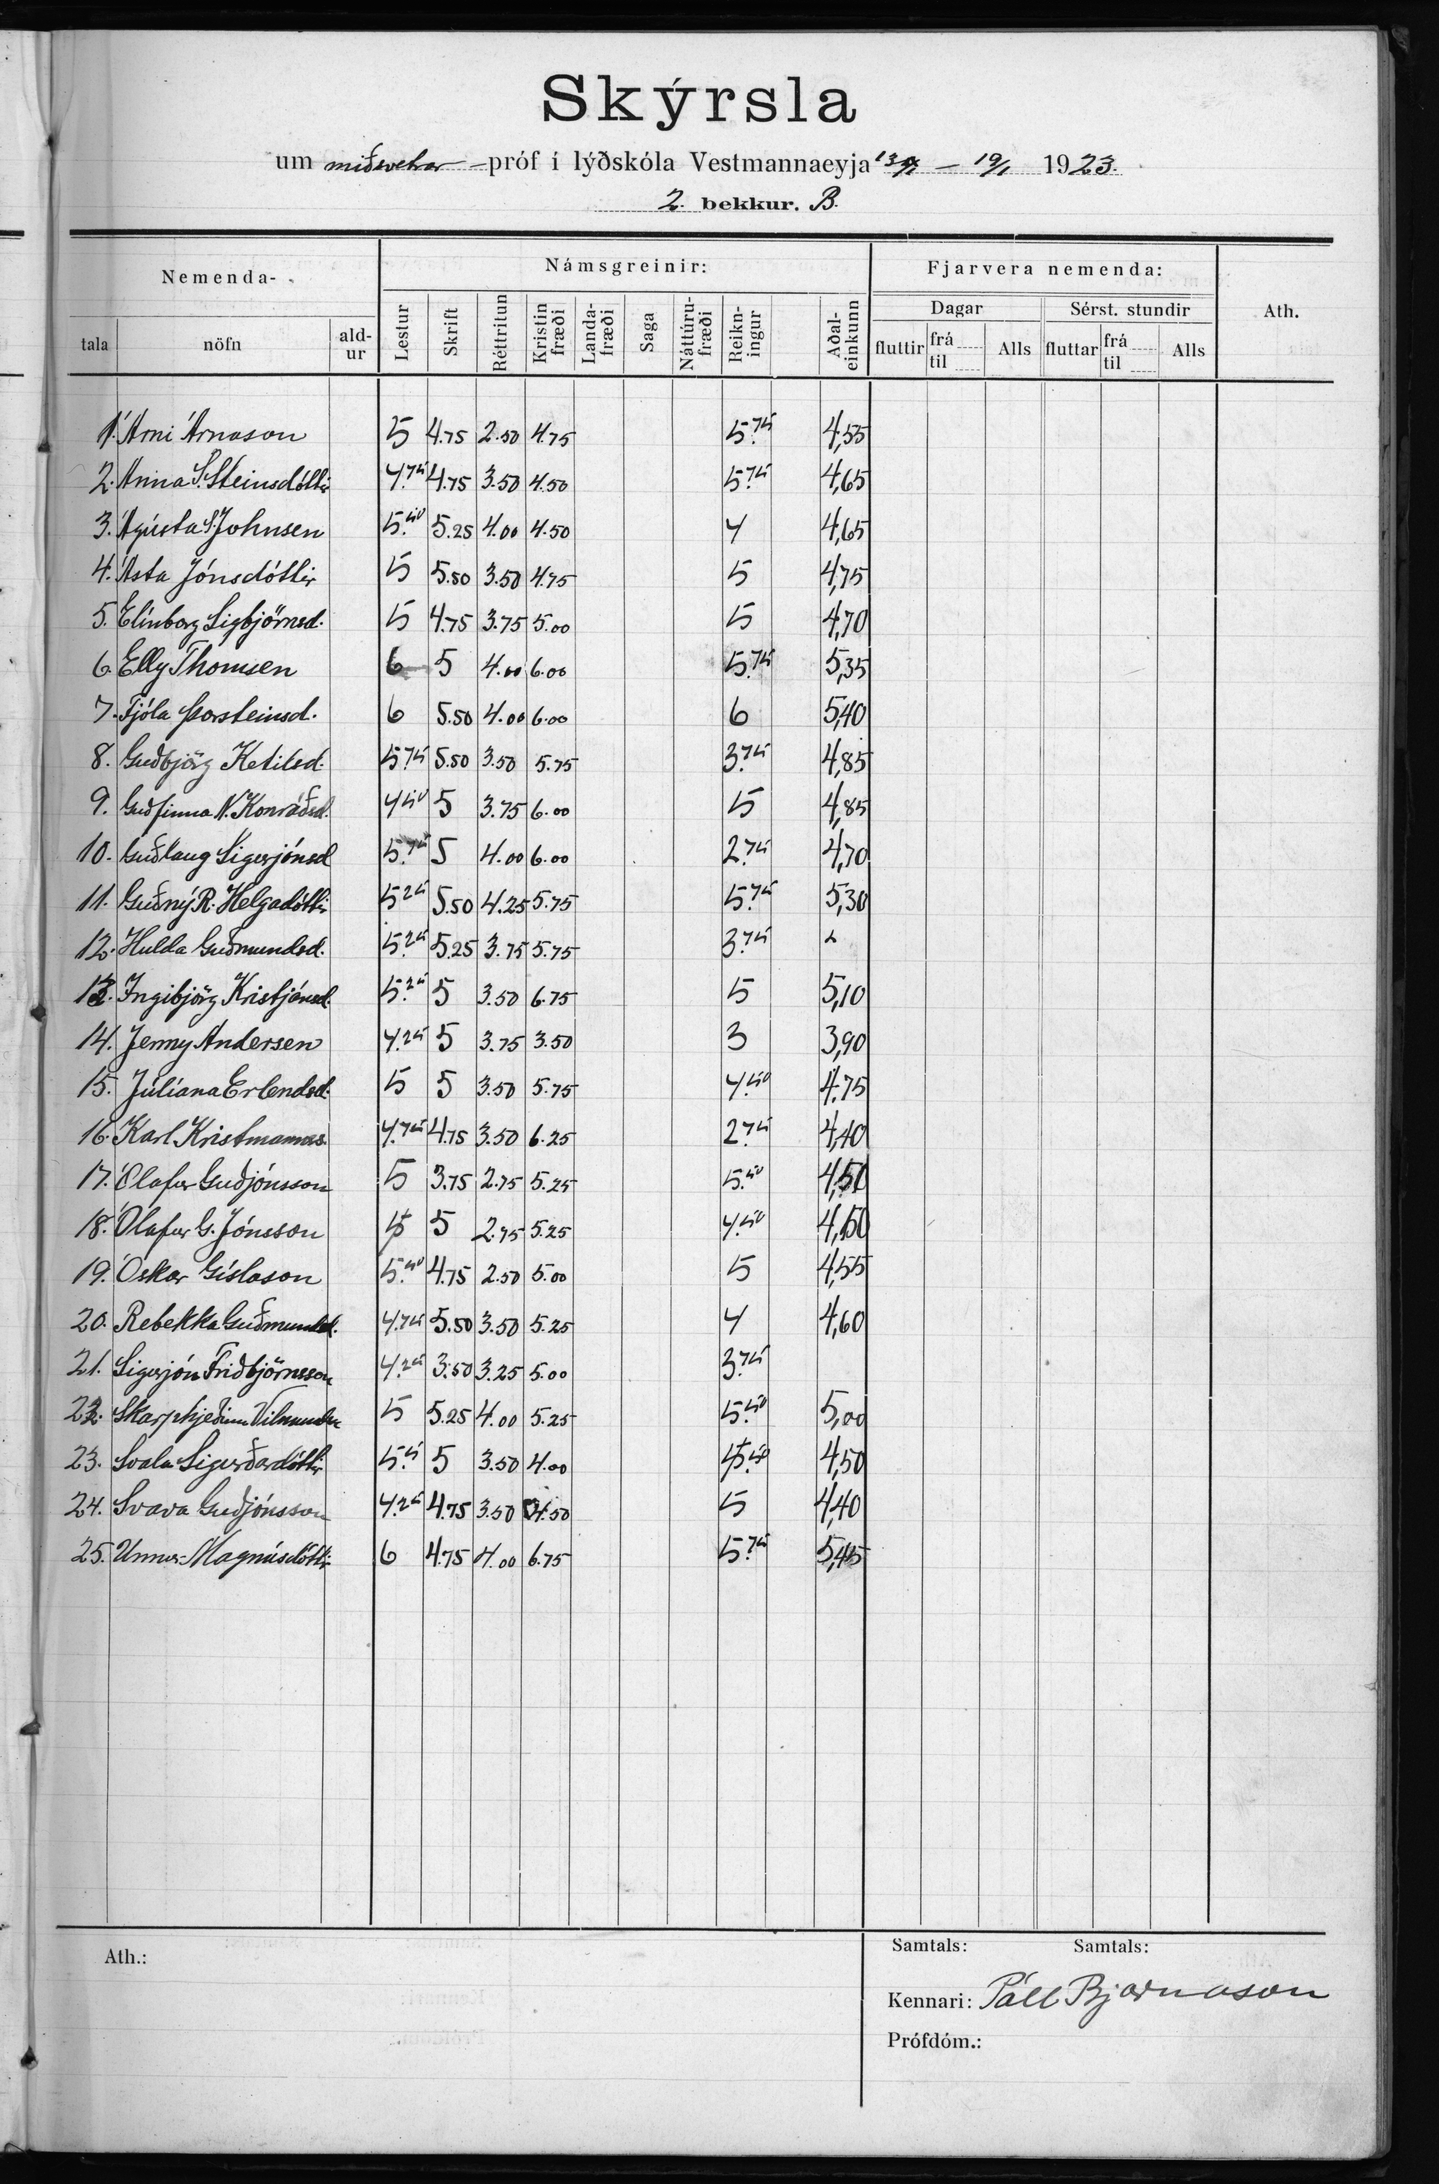 Skýrsla
um miðsvetrar-próf í lýðskóla Vestmannaeyja 13/1 - 19/1 1923.
2. bekkur. B.
Nemenda- Námsgreinir: Fjarvera nemenda: Ath.
Dagar Sérst. stundir
tala nöfn ald-ur Lestur Skrift Réttritun Kristin fræði Landa-fræði Saga Náttúru-fræði Reikn-ingur Aðal-einkunn fluttir frá til Alls fluttar frá til Alls
1. Árni Árnason 5 4.75 2.50 4.75 5.75 4,55
2. Anna S. Steinsdóttir 4.75 4.75 3.50 4.50 5.75 4,65
3. Ágústa S. Johnsen 5.50 5.25 4.00 4.50 4 4,65
4. Ásta Jónsdóttir 5 5.50 3.50 4.75 5 4,75
5. Elínborg Sigbjörnsd. 5 4.75 3.75 5.00 5 4,70
6. Elly Thomsen 6 5 4.00 6.00 5.75 5,35
7. Fjóla Þorsteinsd. 6 5.50 4.00 6.00 6 5,40
8. Guðbjörg Ketilsd. 5.75 5.50 3.50 5.75 3.75 4,85
9. Guðfinna N. Konráðsd. 4.50 5 3.75 6.00 5 4,85
10. Guðlaug Sigurjónsd 5.75 5 4.00 6.00 2.75 4,70
11. Guðný R. Helgadóttir 5.25 5.50 4.25 5.75 5.75 5,30
12. Hulda Guðmundsd. 5.25 5.25 3.75 5.75 3.75
13. Ingibjörg Kristjánsd. 5.25 5 3.50 6.75 5 5,10
14. Jenny Andersen 4.25 5 3.75 3.50 3 3,90
15. Júlíana Erlendsd. 5 5 3.50 5.75 4.50 4,75
16. Karl Kristmanns 4.75 4.75 3.50 6.25 2.75 4,40
17. Ólafur Guðjónsson 5 3.75 2.75 5.25 5.50 4,50
18. Ólafur G. Jónsson 5 2.75 5.25 4.50 4,50
19. Óskar Gíslason 5.50 4.75 2.50 5.00 5 4,55
20. Rebekka Guðmundsd. 4.75 5.50 3.50 5.25 4 4,60
21. Sigurjón Friðbjörnsson 4.25 3.50 3.25 5.00 3.75
22. Skarphjeðinn Vilmundar 5 5.25 4.00 5.25 5.50 5,00
23. Svala Sigurðardóttir 5 3.50 4.00 4,50
24. Svava Guðjónsson 4.25 4.75 3.50 4.50 5 4,40
25. Unnur Magnúsdóttir 6 4.75 4.00 6.75 5.75 5,45
Ath.:
Samtals: Samtals:
Kennari: Páll Bjarnason
Prófdóm.: